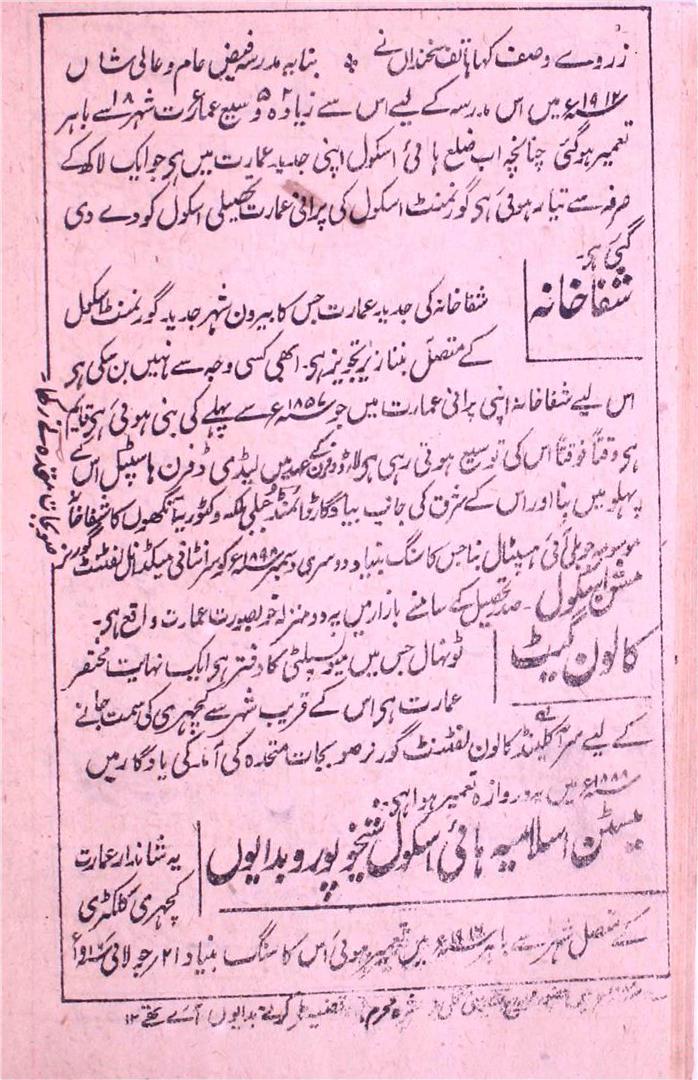 زروے وصف کہا ہاتف سخنداں نے ؞ بنا یہ مدرسہ فیض عام و عالی شاں
۱۹۱۲ء میں اس مدرسہ کے لیے اس سے زیادہ وسیع عمارت شہر سے باہر
تعمیر ہوگئی چنانچہ اب ضلع ہائی اسکول اپنی جدید عمارت میں ہی جو ایک لاکھ کے
صرفہ سے تیار ہوئی ہی گورنمنٹ اسکول کی پرانی عمارت تحصیلی اسکول کو دے دی
گئی ہی۔
شفاخانہ
شفاخانہ کی جدید عمارت جس کا بیرون شہر جدید گورنمنٹ اسکول
کے متصل بننا زیر تجویز ہی۔ ابھی کسی وجہ سے نہیں بن سکی ہی
اس لیے شفاخانہ اپنی پرانی عمارت میں جو ۱۸۵۷ء سے پہلے کی بنی ہوئی ہی قایم
ہی وقتاً فوقتاً اس کی توسیع ہوتی رہی ہی لارڈ ڈفرن کے عہد میں لیڈی ڈفرن ہاسپٹل اس کے
پہلو میں بنا اور اس کے شرق کی جانب بیادگار ڈائمنڈ جبلی ملکہ وکٹوریا آنکھوں کا شفاخانہ
موسومہ جوبلی آئی ہسپٹال بنا جس کا سنگ بنیاد دوسری دسمبر ۱۸۹۸ء کو سر انٹانی میکڈانل لفٹنٹ گورنر
صوبجات متحدہ نے رکھا۔
مشن اسکول ۔ صدر تحصیل کے سامنے بازار میں یہ دو منزلہ خوبصورت عمارت واقع ہی۔
کالون گیٹ
ٹونہال جس میں میونسپلٹی کا دفتر ہی ایک نہایت مختصر
عمارت ہی اس کے قریب شہر سے کچہری کی سمت جانے
کے لیے سر آکلینڈ کالون لفٹنٹ گورنر صوبجات متحدہ کی آمد کی یادگار میں
۱۸۸۸ء میں یہ دروازہ تعمیر ہوا ہی۔
میسٹن اسلامیہ ہائی اسکول شیخوپور و بدایوں
یہ شاندار عمارت
کچہری کلکٹری
کے متصل شہر سے باہر ۱۹۱۶ء میں تعمیر ہوئی اس کا سنگ بنیاد ۲۱ جولائی ۱۹۱۶ء
محرم تصفیہ کرنے بدایوں آے تھے ۱۲